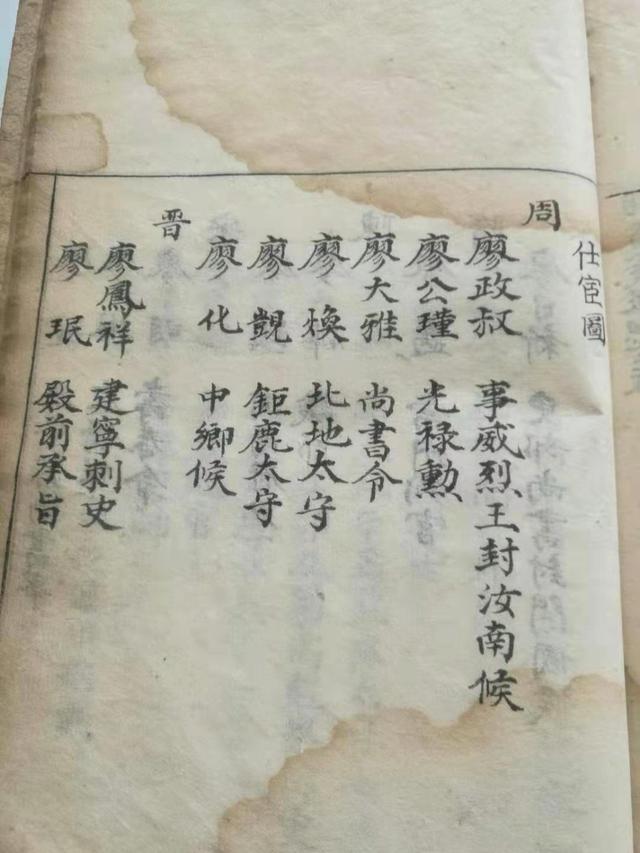 仕宦圖
周
廖政叔 事威烈王封汝南候
廖公瑾 光禄勲
廖大雅 尚書令
廖煥 北地太守
廖覬 鉅鹿太守
廖化 中鄉候
晋
廖鳳祥 建寧刺史
廖珉 殿前承旨